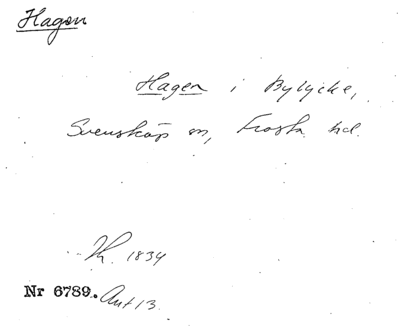 Hagen
Hagen i Bylycke,
Svensköp sn, Frosta hd.
K. 1834
Nr 6789. Ant 13